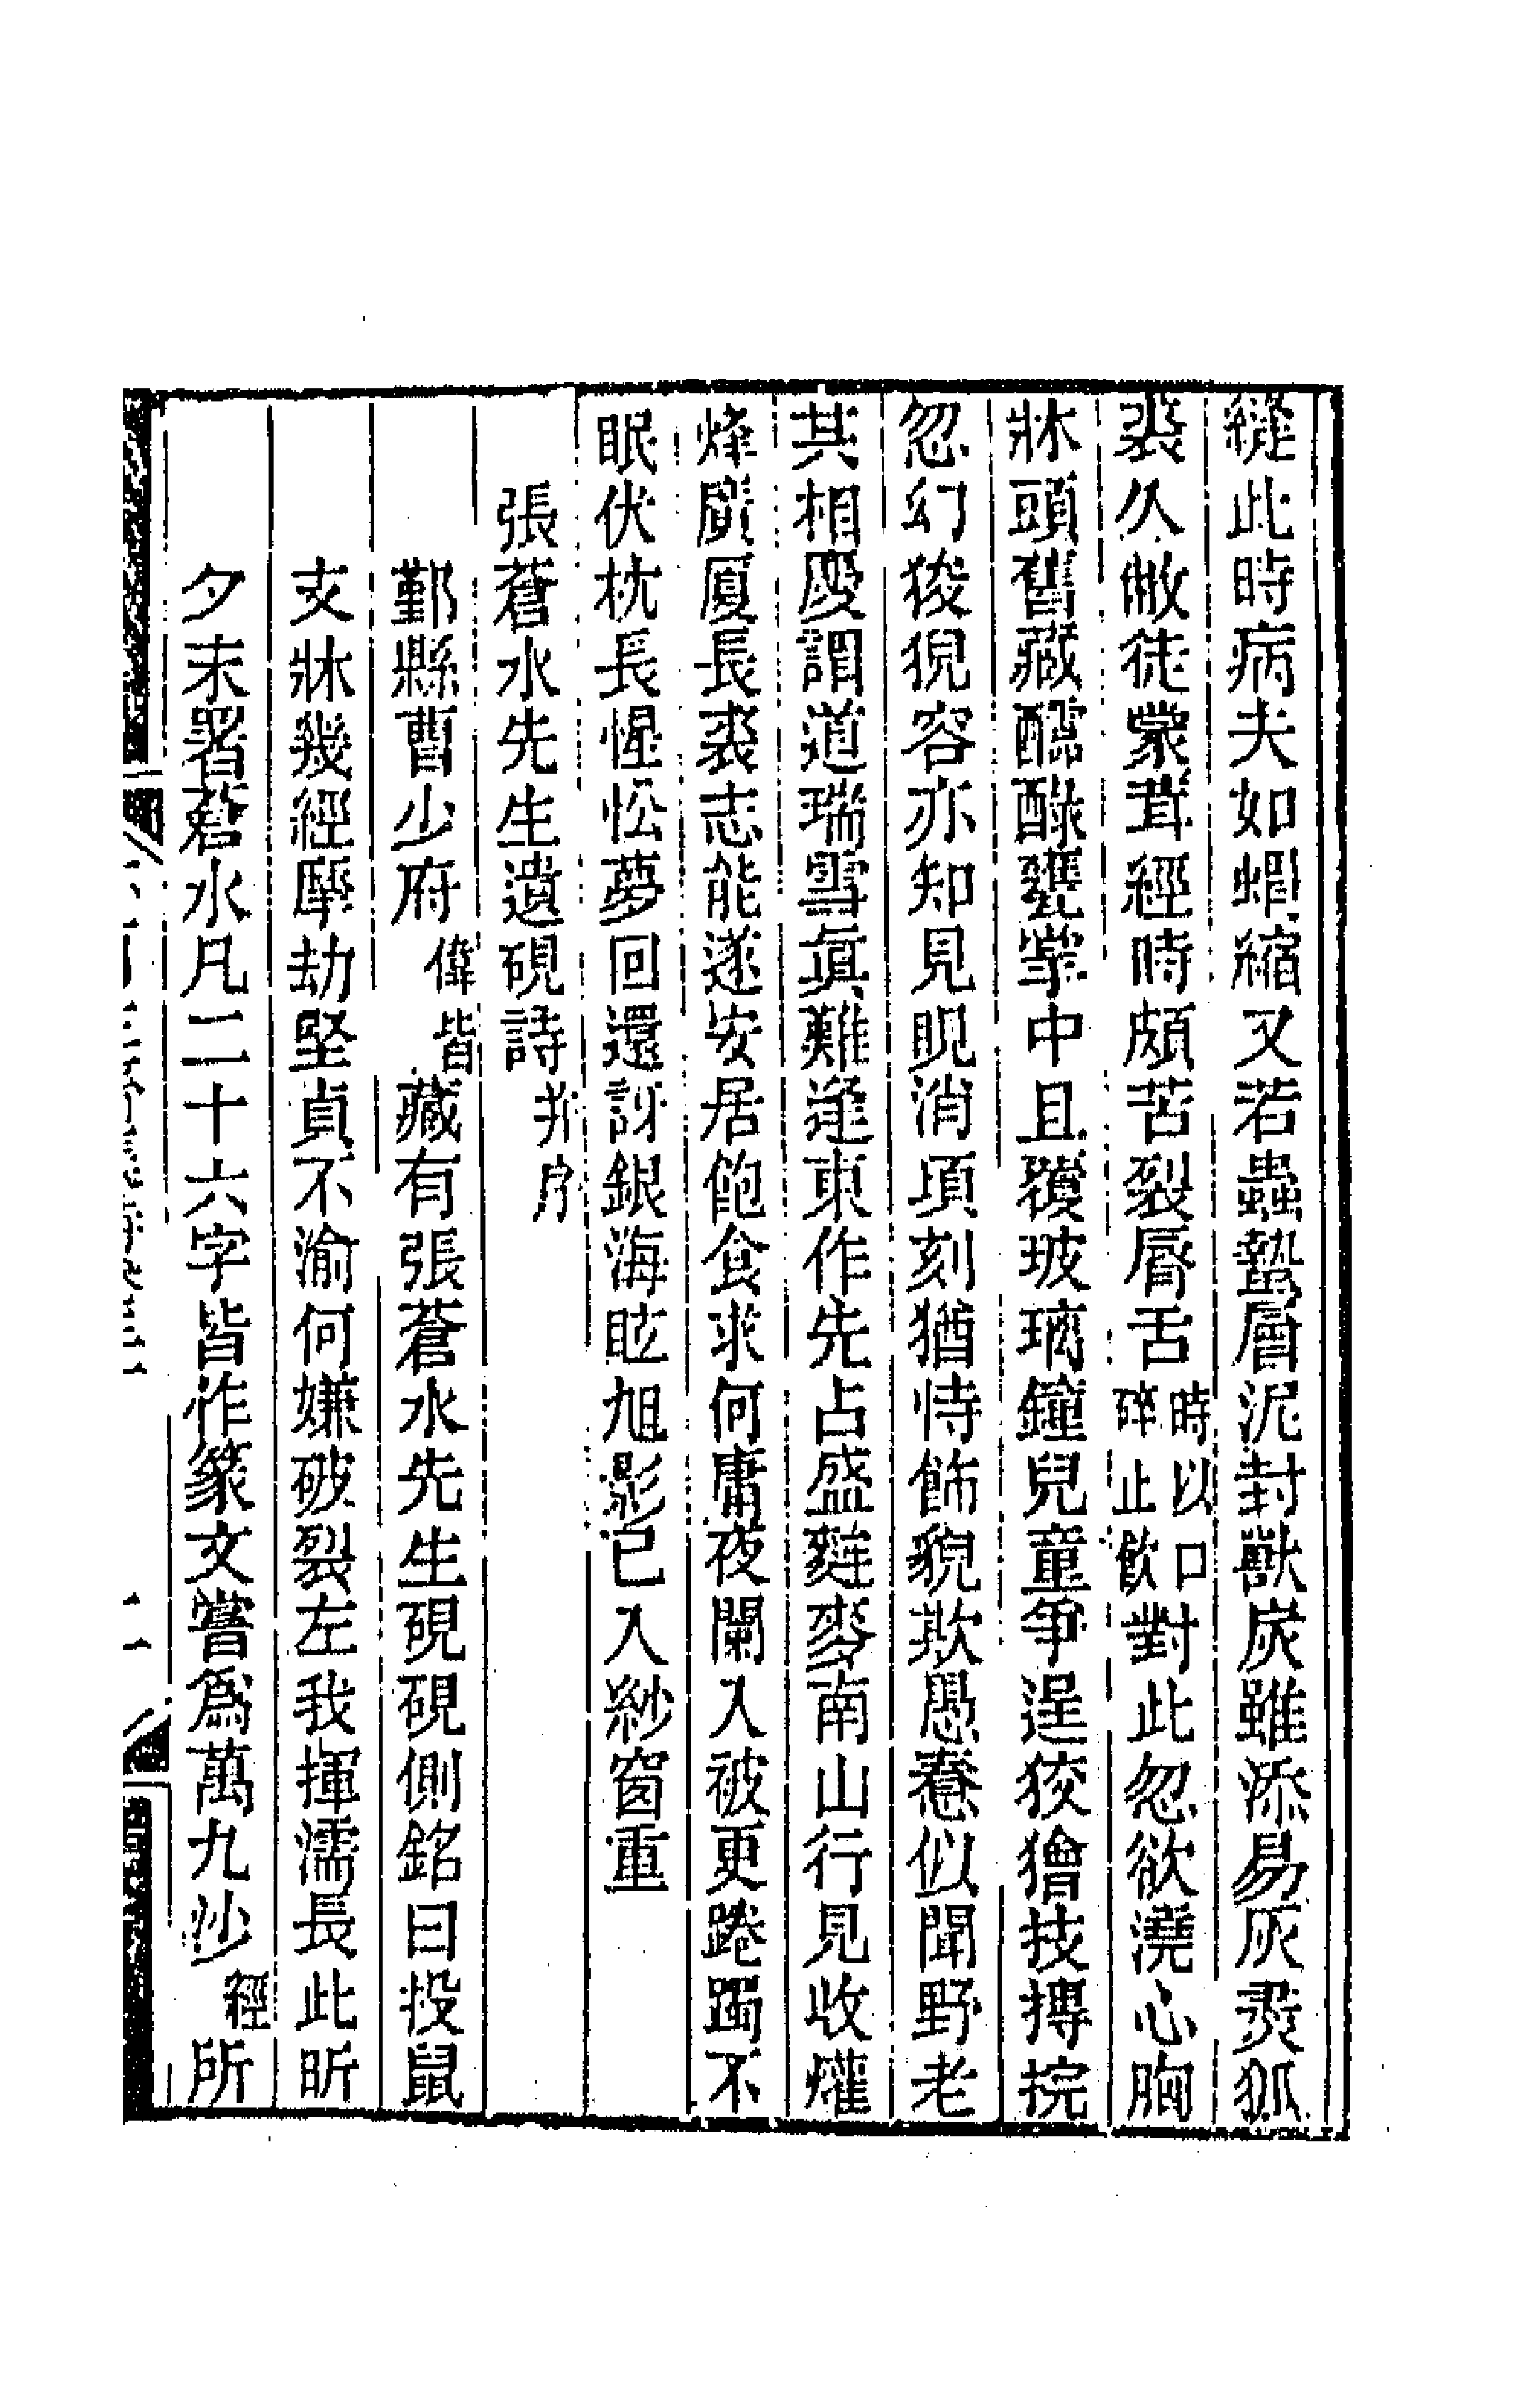 縫此時病夫如蝟縮又若蟲蟄層泥封獸炭雖添易灰燼狐
裘久敝徒蒙茸經時頗苦裂脣舌時以口碎止飲對此忽欲澆心胸
牀頭舊藏醽醁甕掌中且覆玻璃鐘兒童爭逞狡獪技摶捖
忽幻狻猊容亦知見晛消頃刻猶恃飾貌欺愚惷似聞野老
其相慶謂道瑞雪眞難逢東作先占盛麰麥南山行見收爟
烽廣廈長裘志能遂安居飽食求何庸夜闌入被更踡躅不
眠伏枕長惺忪夢回還訝銀海眩旭影已入紗窗重
張蒼水先生遺硯詩并序
鄞縣曹少府偉皆藏有張蒼水先生硯硯側銘曰投鼠
支牀幾經厯劫堅貞不渝何嫌破裂左我揮濡長此昕
夕末署蒼水凡二十六字皆作篆文嘗爲萬九沙經所